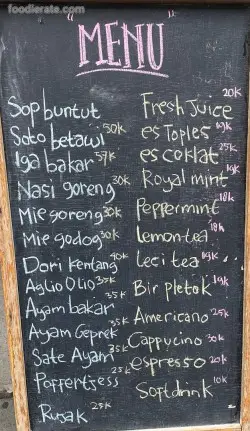 foodierate.com
"MENU"
Sop buntut
Soto betawi 50k
Iga bakar 57k
Nasi goreng 30k
Mie goreng 30k
Mie godog 30k
Dori kentang 40k
Aglio Olio 35k
Ayam bakar 35k
Ayam Geprek 35k
Sate Ayam 35k
Poffertjess 25k
Rujak 25k
Fresh Juice 20k
es Toples 19k
es coklat 25k
Royal mint 19k
Peppermint 18k
lemon tea 18k
Leci tea 19k
Bir pletok 19k
Americano 25k
Cappucino 30k
espresso 20k
Softdrink 10k